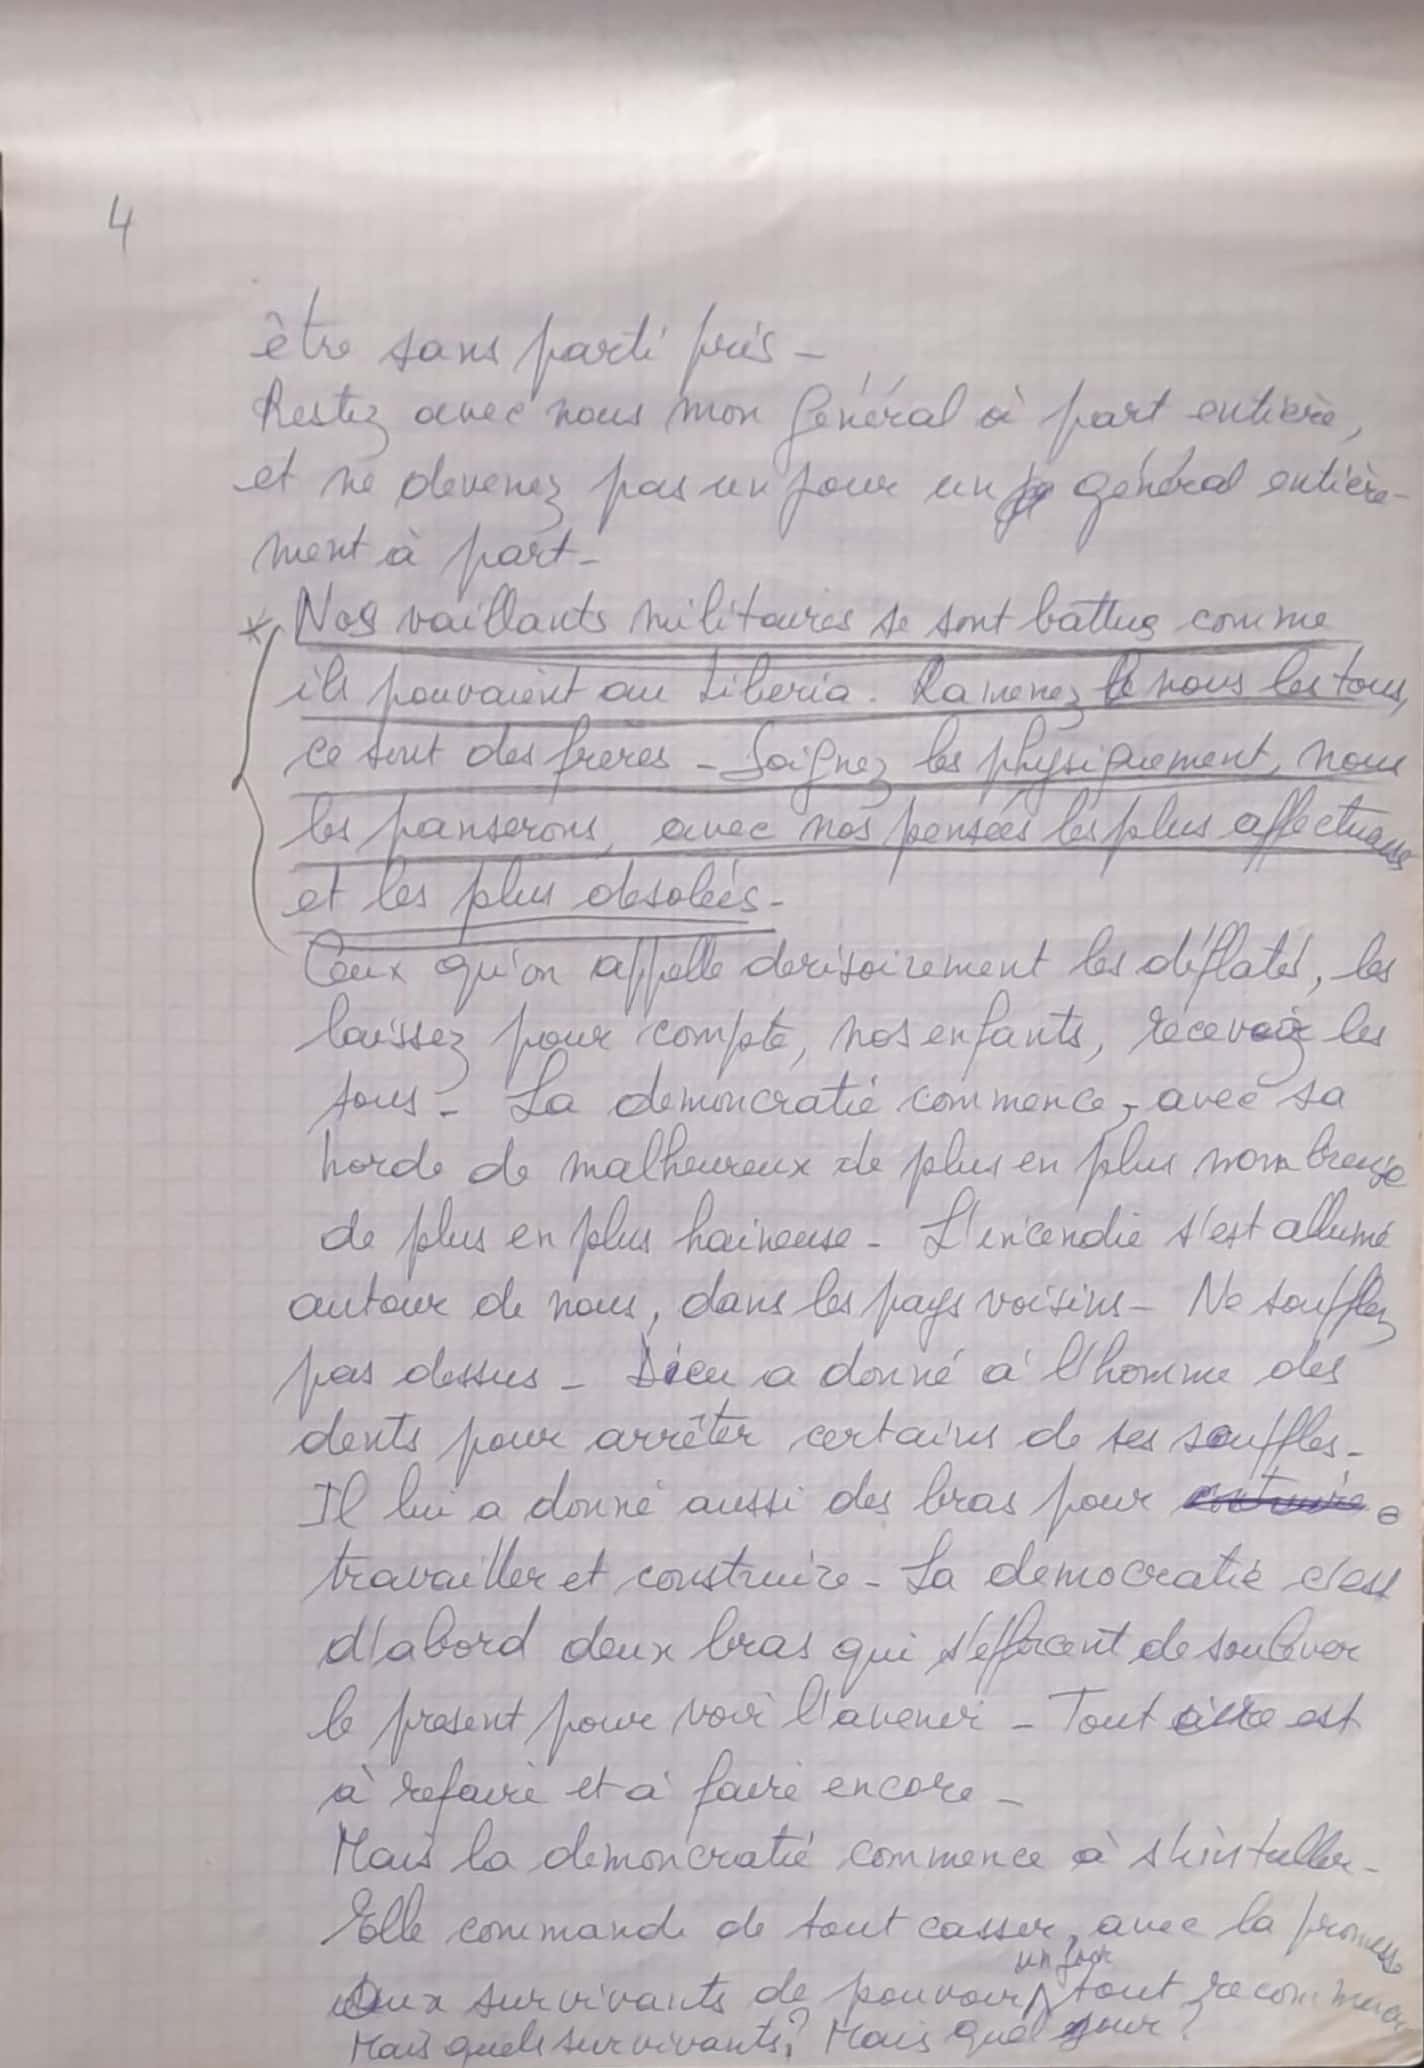 4
être sans parti pris -
Restez avec nous mon Général à part entière,
et ne devenez pas un jour un général entière-
ment à part -
* Nos vaillants militaires se sont battus comme
ils pouvaient au Liberia. Ramenez nous les tous,
ce sont des frères - Soignez les physiquement, nous
les panserons, avec nos pensées les plus affectueuses
et les plus desolées -
Ceux qu'on appelle derisoirement les déflatés, les
laissez pour compte, nos enfants, recevez les
tous - La demoncratie commence, avec sa
horde de malheureux de plus en plus nombreuse
de plus en plus haineuse - L'incendie s'est allumé
autour de nous, dans les pays voisins - Ne soufflez
pas dessus - Dieu a donné à l'homme des
dents pour arrêter certains de ses souffles -
Il lui a donné aussi des bras pour
travailler et construire - La democratie c'est
d'abord deux bras qui s'efforcent de soulever
le present pour voir l'avenir - Tout est
à refaire et à faire encore -
Mais la demoncratie commence à s'installer -
Elle commande de tout casser, avec la promesse
un jour
aux survivants de pouvoir tout recommencer
Mais quels survivants? Mais quel jour?